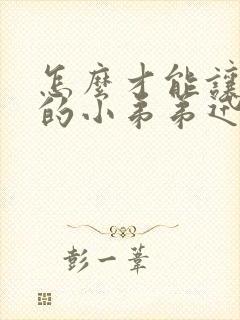 怎麼才能讓
的小弟弟近
彭一葦